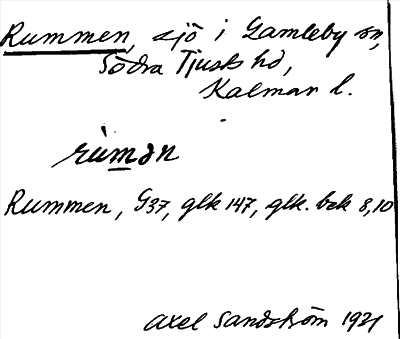 Rummen, sjö i Gamleby sn,
Södra Tjusts hd,
Kalmar l.
rùmən
Rummen, G37, glk 147, glk. bek 8,10
Axel Sandström 1921